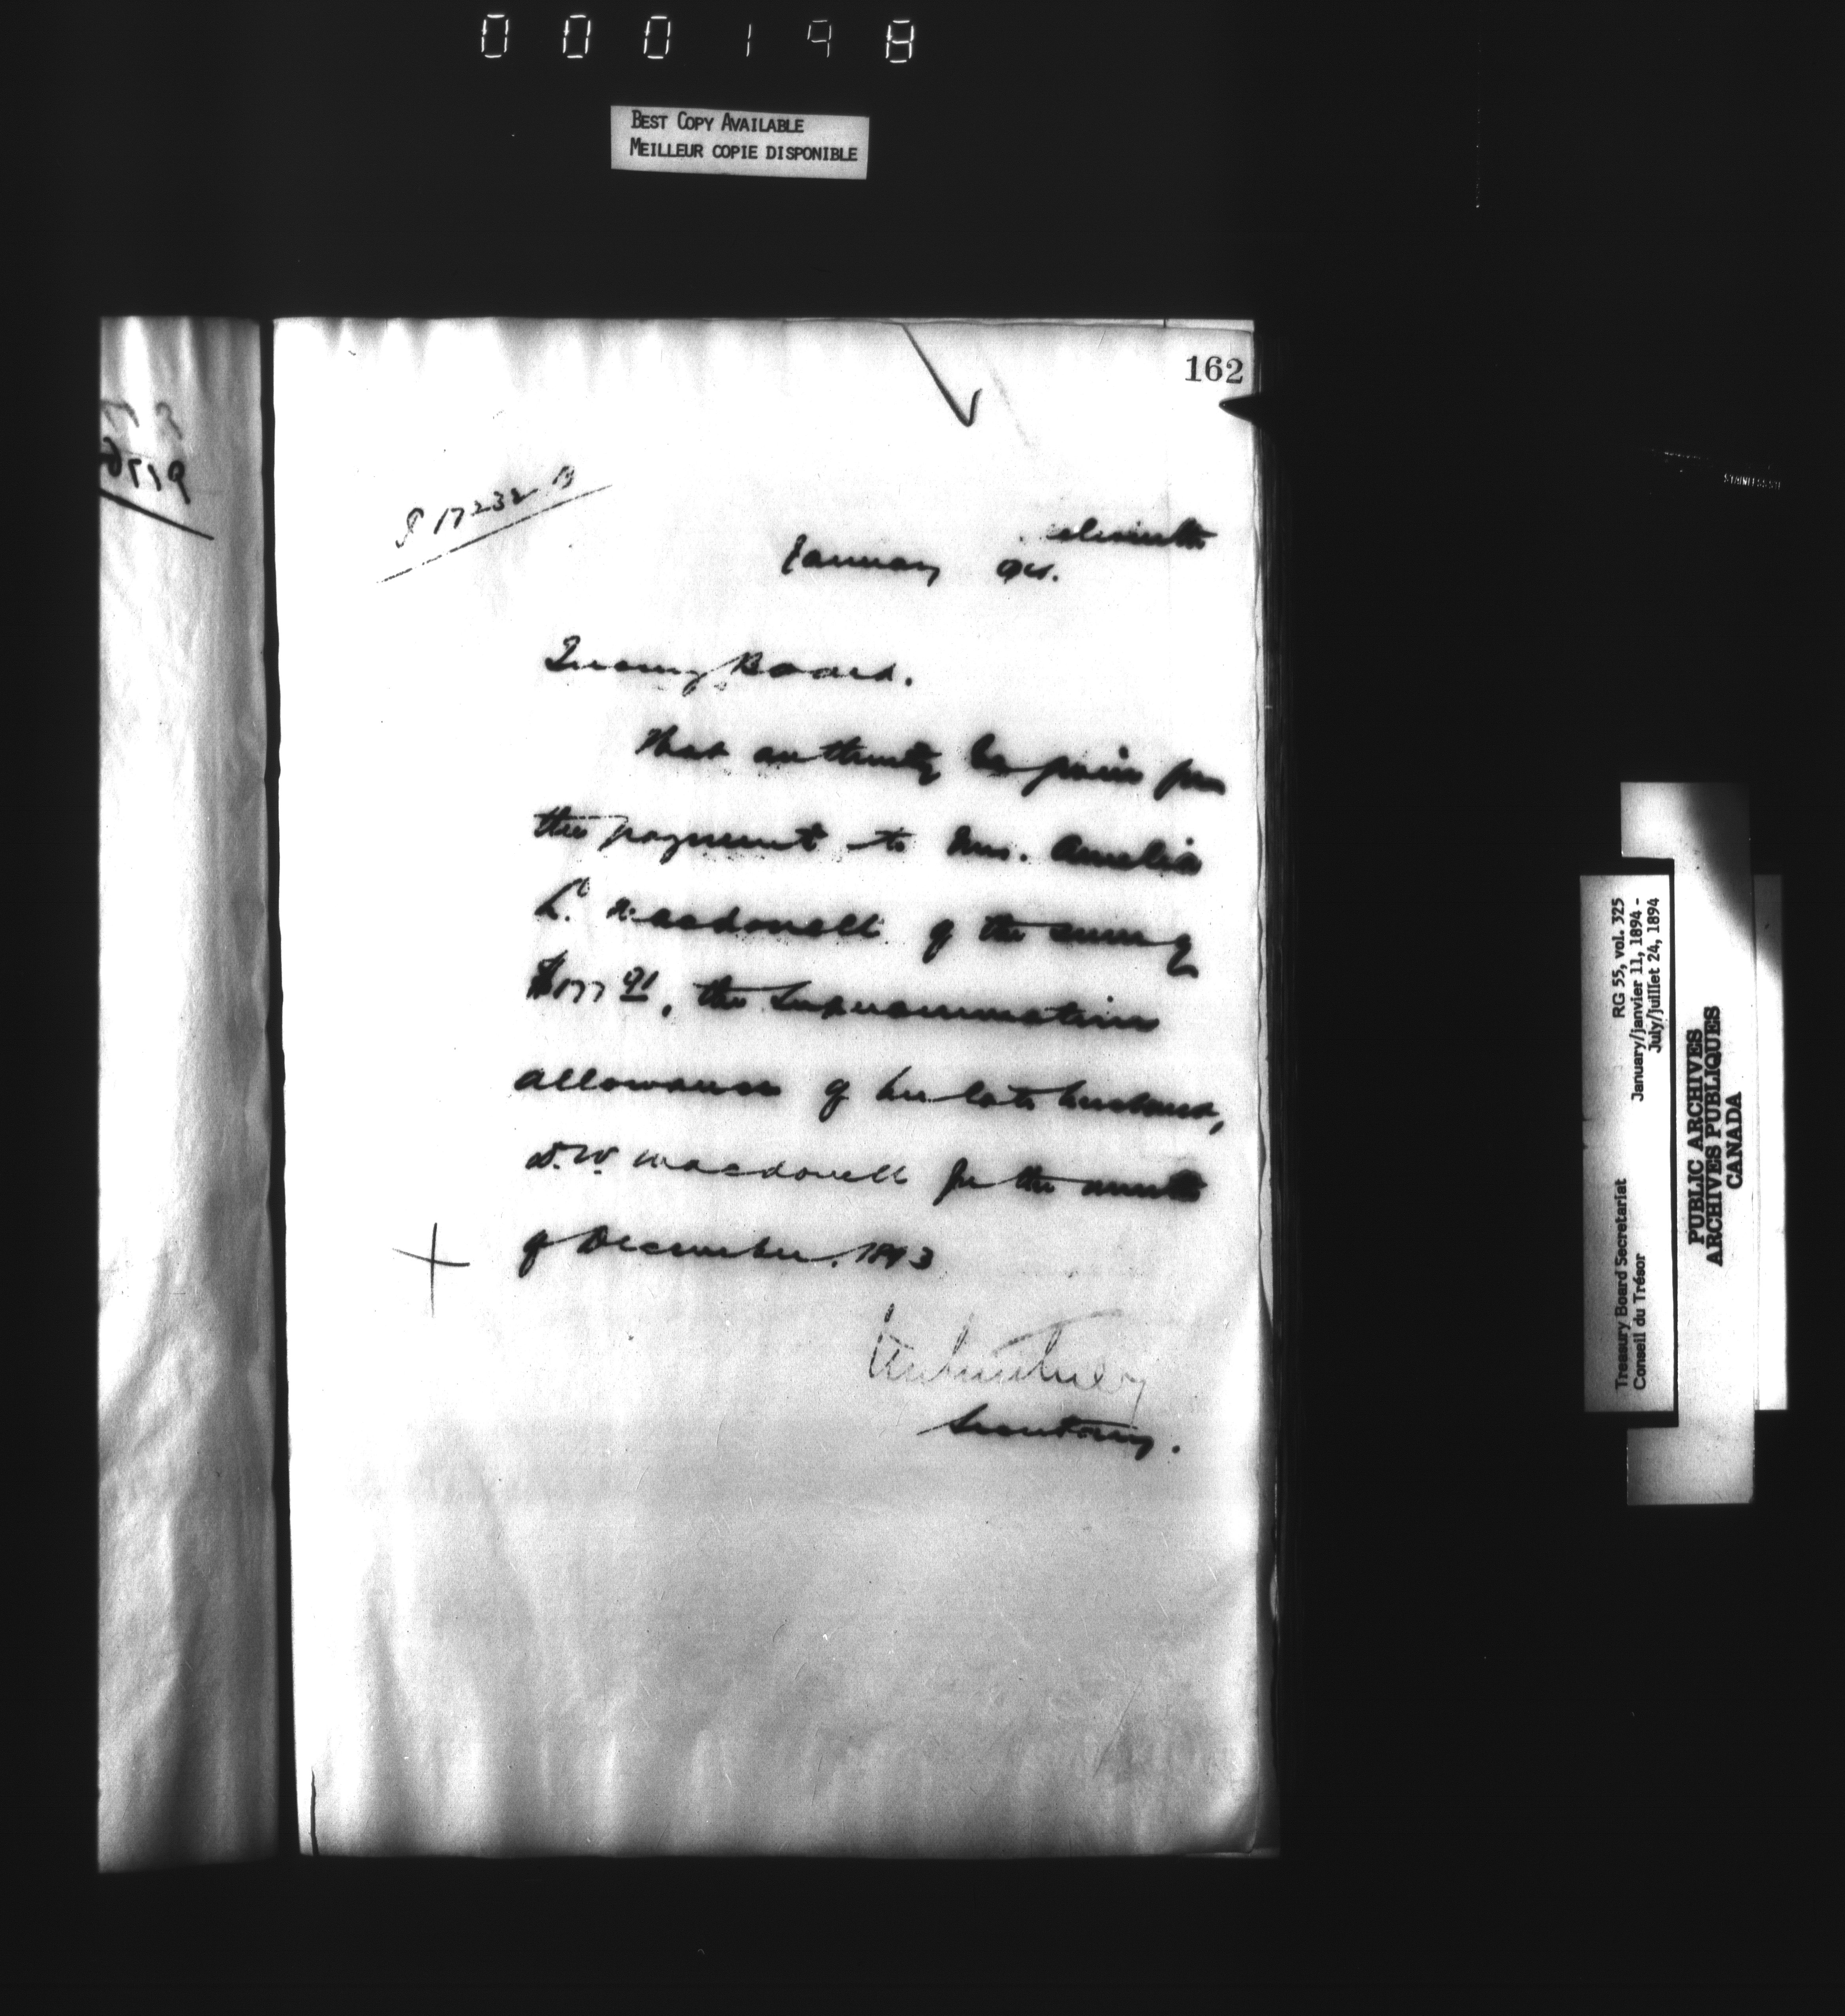 000198
BEST COPY AVAILABLE
MEILLEUR COPIE DISPONIBLE
162
17232 B
eleventh
January 94.
Treasury Board.
That authority be given for
the payment to Mrs. Amelia
L. Macdonell of the sum of
91, the Superannuation
allowance of her late husband,
D. W. Macdonell for the month
of December, 1893
Secretary.
RG 55, vol. 325
January/janvier 11, 1894 -
July/juillet 24, 1894
Treasury Board Secretariat
Conseil du Trésor
PUBLIC ARCHIVES
ARCHIVES PUBLIQUES
CANADA